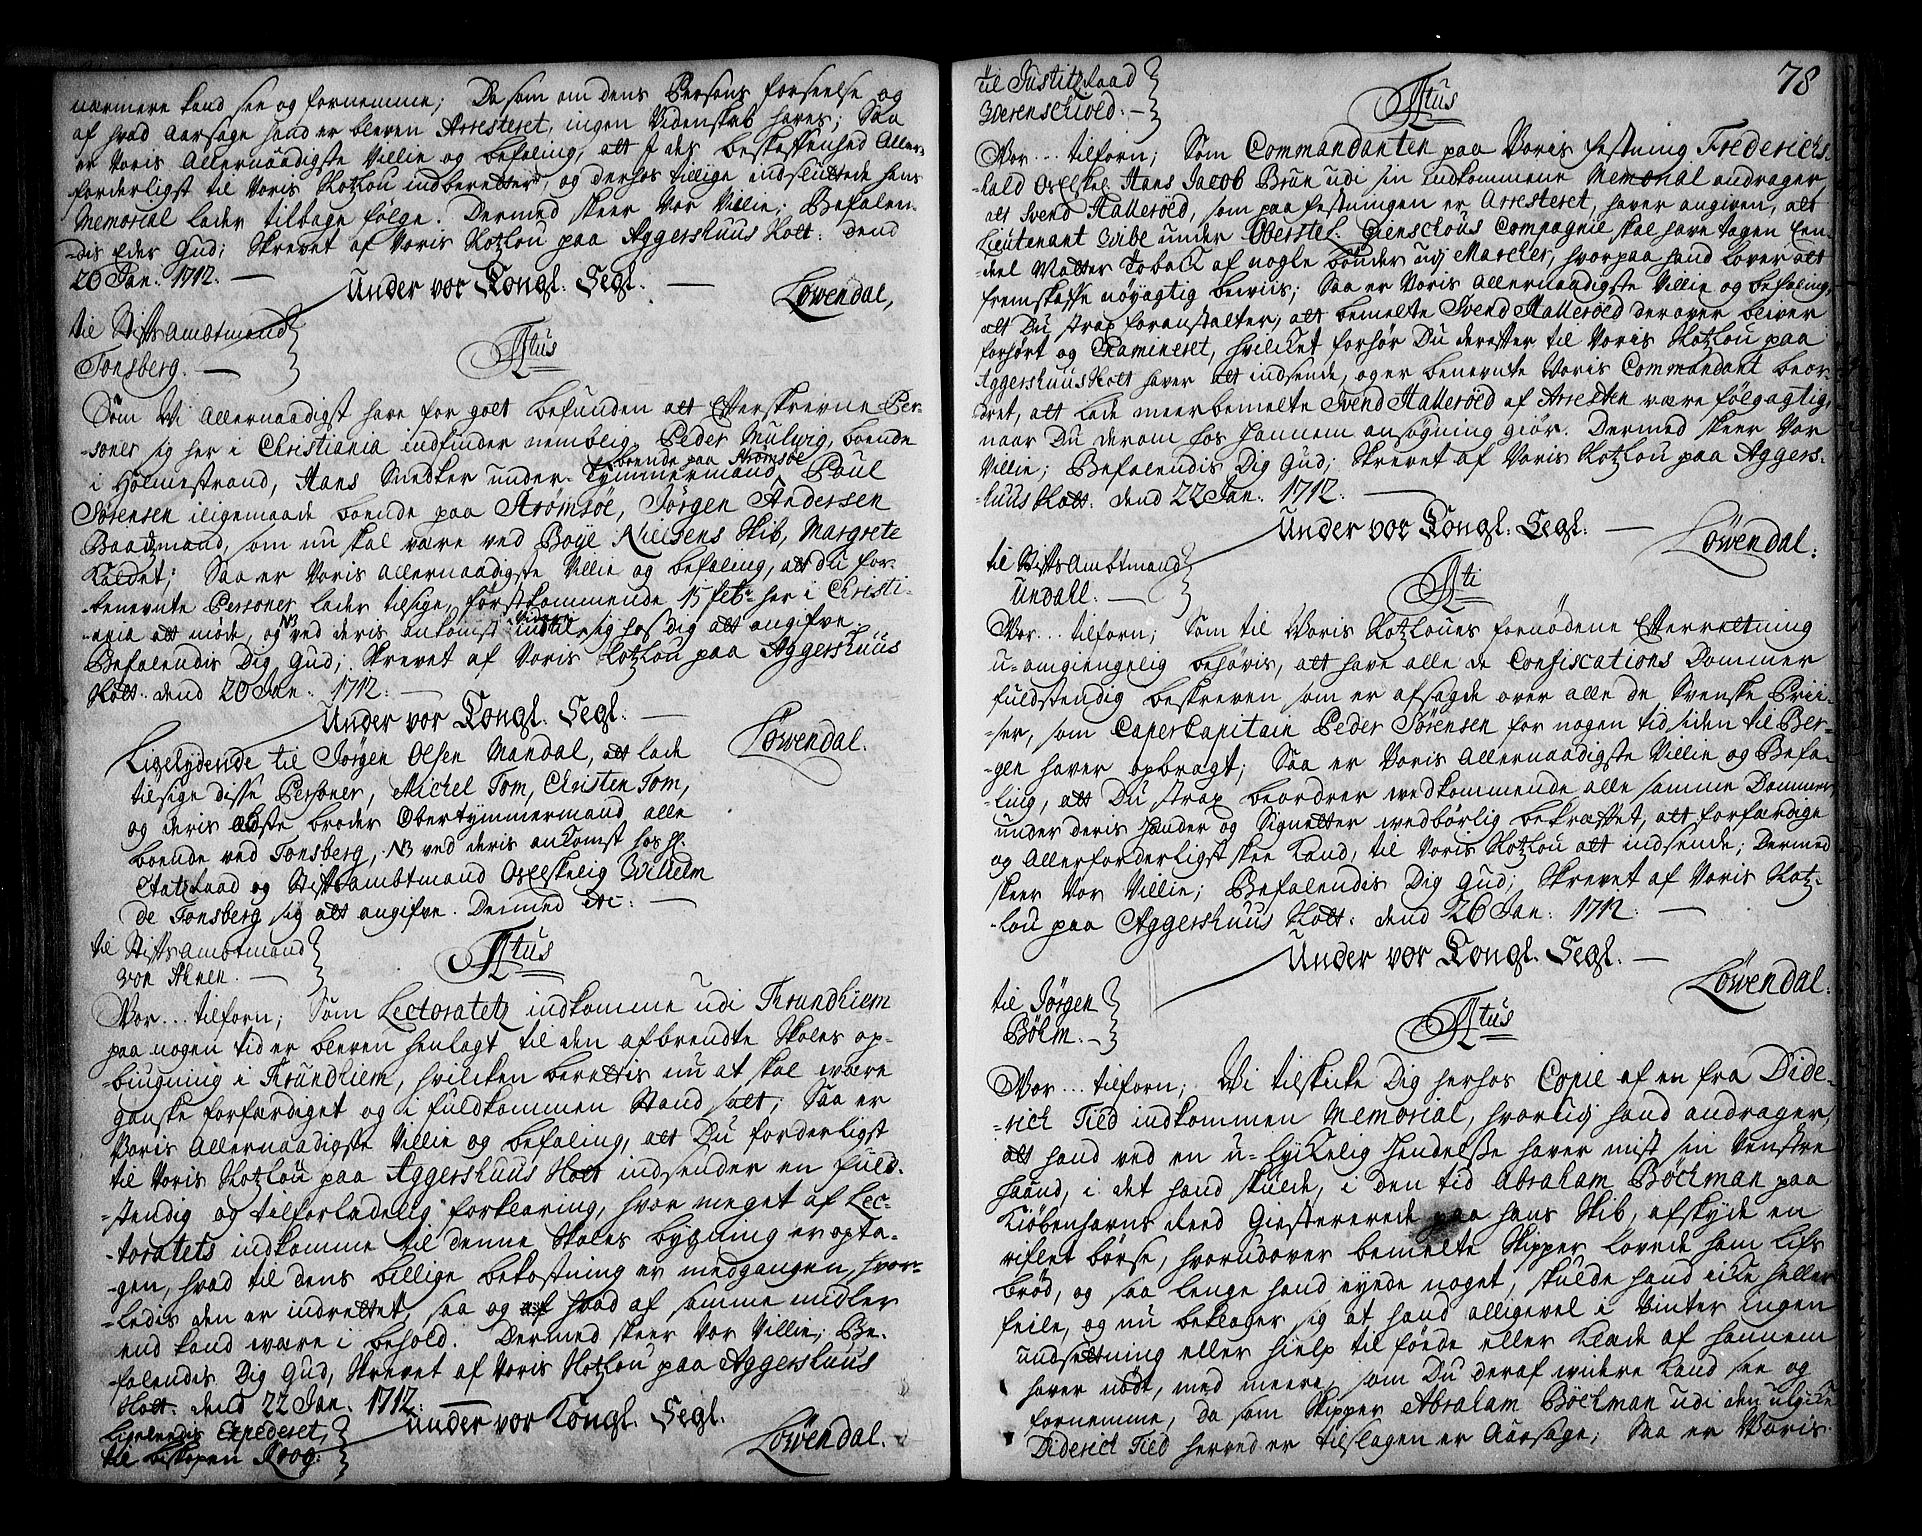 nærmere kand see og fornemme; Da som om dens Persons forseelse og
af hvad Aarsage hand er bleven Arresteret, ingen Videnskab haves; Saa
er Voris Allernaadigste Villie og befaling, att I des beskaffenhed Aller-
forderligst til Voris Slotzlou indberetter, og derhos tillige indsluttede hans
Memorial lader tilbage følge. Dermed skeer Vor Villie; Befalen-
-dis Eder Gud; Skrevet af Voris Slotzlou paa Aggershuus Slott: dend
20 Jan: 1712. —
Under vor Kongl. Segl. —
Løwendal,
til StiftsAmbtmand
Tonsberg. —
Som Vi Allernaadigst have for got befunden att Efterskrevne Per-
-soner sig her i Christiania indfinder nemblig, Peder Mulvig, boende
i Holmestrand, Hans Snedker under-Tymmermand boende paa Strømsøe Poul
Sørensen iligemaade boende paa Strømsøe, Jørgen Andersen
Baadzmand, som nu skal være ved Boye Nielsens Skib, Margrete
kaldet; Saa er Voris Allernaadigste Villie og befaling, att du for-
-benevnte Personer lader tilsige, førstkommende 15 feb: her i Christi-
-ania att møde, og NB ved deris ankomst sig hos dig att angifve.
Befalendis Dig Gud; Skrevet af Voris Slotzlou paa Aggershuus
Slott: dend 20 Jan: 1712. —
Under vor Kongl. Segl. —
Løwendal.
Ligelydende til Jørgen Olsen Mandal, att lade
tilsige disse Personer, Michel Tom, Christen Tom,
og deris ældste broder Obertymmermand, alle
boende ved Tonsberg, NB ved deris ankomst hos H.
Etatzraad og StiftsAmbtmand Oselskelig Wilhelm
de Tonsberg sig att angifve. Dermed etc: —
til StiftsAmbtmand
von Ahnen. —
Vor... tilforn; Som Lectoratetz indkomme udi Trundhiem
paa nogen tid er bleven henlagt til den afbrendte Skoles op-
-biugning i Trundhiem, hvilcken berettis nu at skal være
ganske forfærdiget og i fuldkommen Stand satt; Saa er
Voris Allernaadigste Villie og befaling, att Du forderligst
til Voris Slotzlou paa Aggershuus Slott indsender en fuld-
-stendig og tilforladelig forklaring, hvor meget af Lec-
-toratets indkomme til denne Skoles bygning er opta-
-gen, hvad til dens billige bekostning er medgangen, hvor-
-ledis den er indrettet, saa og hvad af samme midler
end kand være i behold. Dermed skeer Vor Villie; Be-
falendis Dig Gud, Skrevet af Voris Slotzlou paa Aggershuus
Slott: dend 22 Jan: 1712. —
Under vor Kongl. Segl.
Løwendal.
Ligeledis Expederet,
til biskopen Krog.
78
til Justitzraad
Werenschiold. —
Vor... tilforn; Som Commandanten paa Voris festning Frederichs-
-hald Oselskel. Hans Jacob Brun udi sin indkommene Memorial andrager,
att Svend Hallerøed, som paa festningen er Arresteret, haver angiven, att
Lieutenant Wibe under Oberstel. Gienschous Compagnie skal have tagen Een-
-deel Matter Toback af nogle bønder udj Marcher, hvorpaa hand lover att
fremskaffe nøyagtig beviis; Saa er Voris Allernaadigste Villie og befaling,
att Du strax foranstalter, att bemelte Svend Hallerøed derover bliver
forhørt og Examineret, hvilcket forhør Du derefter til Voris Slotzlou paa
Aggershuus Slott haver att indsende, og er benevnte Voris Commandant beor-
dret, att lade meerbemelte Svend Hallerøed af Arresten være følgagtig,
naar Du derom hos hannem ansøgning giør. Dermed skeer Vor
Villie; Befalendis Dig Gud; Skrevet af Voris Slotzlou paa Aggers-
-huus Slott: dend 22 Jan: 1712. —
Under vor Kongl. Segl. —
Løwendal.
til StiftsAmbtmand
Undall. —
Vor... tilforn; Som til Woris Slotzloues fornødene Efterretning
u-omgiengelig behøvis, att have alle de Confiscations Dommer
fuldstendig beskreven, som er afsagde over alle de Svenske Prii-
-ser, som CaperCapitain Peder Sørensen for nogen tid siden til Ber-
-gen haver opbragt; Saa er Voris Allernaadigste Villie og Befa-
-ling, att Du strax beordrer vedkommende alle samme Dommer
under deris Hænder og Signetter wedbørlig bekræftet, att forfærdige
og Allerforderligst skee kand, til Voris Slotzlou att indsende; Dermed
skeer Vor Villie; Befalendis Dig Gud; Skrevet af Voris Slotz-
-lou paa Aggershuus Slott: dend 26 Jan: 1712. —
Under vor Kongl. Segl. —
Løwendal.
til Jørgen
Bølm. —
Vor... tilforn; Vi tilskicke Dig herhos Copie af en fra Dide-
-rich Tild indkommen Memorial, hvorudj hand andrager,
att hand ved en u-lyckelig Hendelsse haver mist sin Venstre
haand, i det hand skulde, i den tid Abraham Bøckman paa
Kiøbenhavns Reed Giestererede paa hans Skib, afskyde en
riflet børse, hvorudover bemelte Skipper lovede ham lifs
brød, og saa lenge hand eyede noget, skulde hand icke heller
feile, og nu beklager sig at hand alligevel i Vinter ingen
undsettning eller hielp til føede eller klæde af hannem
haver nødt, med meere, som Du deraf widere kand see og
fornemme, da som Skipper Abraham Bøckman udi den ulycke
Diderich Tild herved er tilslagen er Aarsage; Saa er Woris